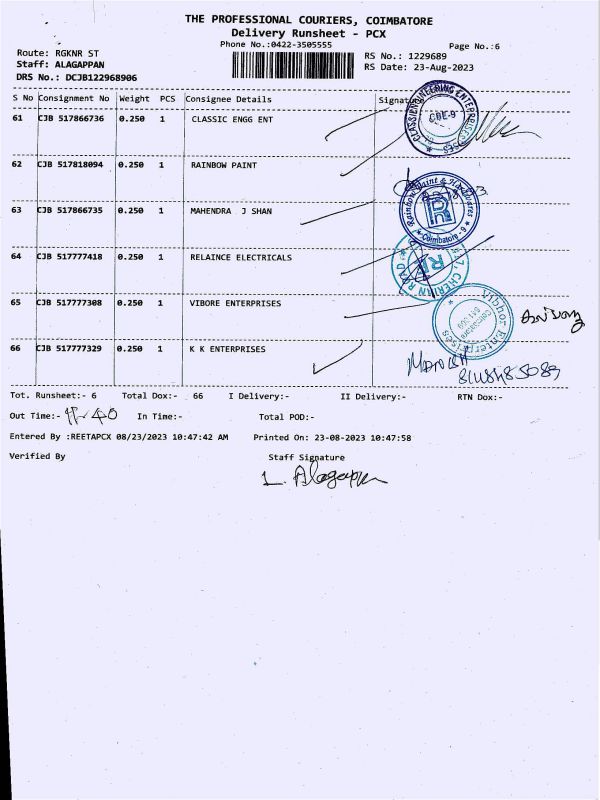 THE PROFESSIONAL COURIERS, COIMBATORE
Delivery Runsheet - PCX
Phone No.:0422-3505555
Page No.:6
Route: RGKNR ST
RS No.: 1229689
Staff: ALAGAPPAN
RS Date: 23-Aug-2023
DRS No.: DCJB122968906
S No Consignment No Weight PCS Consignee Details Signature
61 CJB 517866736 0.250 1 CLASSIC ENGG ENT
CBE-9
62 CJB 517818094 0.250 1 RAINBOW PAINT
Rainbow Paint & Hardwares
Coimbatore - 9
63 CJB 517866735 0.250 1 MAHENDRA J SHAN
64 CJB 517777418 0.250 1 RELAINCE ELECTRICALS
CHERIAN ROAD
65 CJB 517777308 0.250 1 VIBORE ENTERPRISES
Vibhor Enterprises
66 CJB 517777329 0.250 1 K K ENTERPRISES
Tot. Runsheet:- 6 Total Dox:- 66 I Delivery:- II Delivery:- RTN Dox:-
Out Time:- In Time:- Total POD:-
Entered By :REETAPCX 08/23/2023 10:47:42 AM Printed On: 23-08-2023 10:47:58
Verified By Staff Signature
L. Alagappan